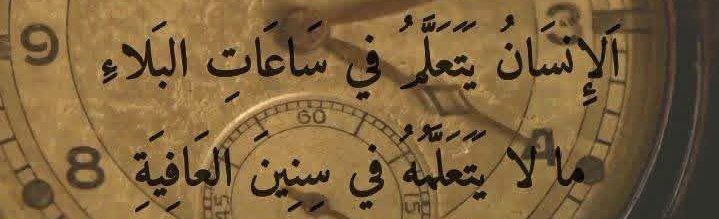 اَلإِنسَانُ يَتَعَلَّمُ في سَاعَاتِ البَلاءِ
ما لا يَتَعَلَّمُهُ في سِنِينَ العَافِيَةِ
9
8
60
45